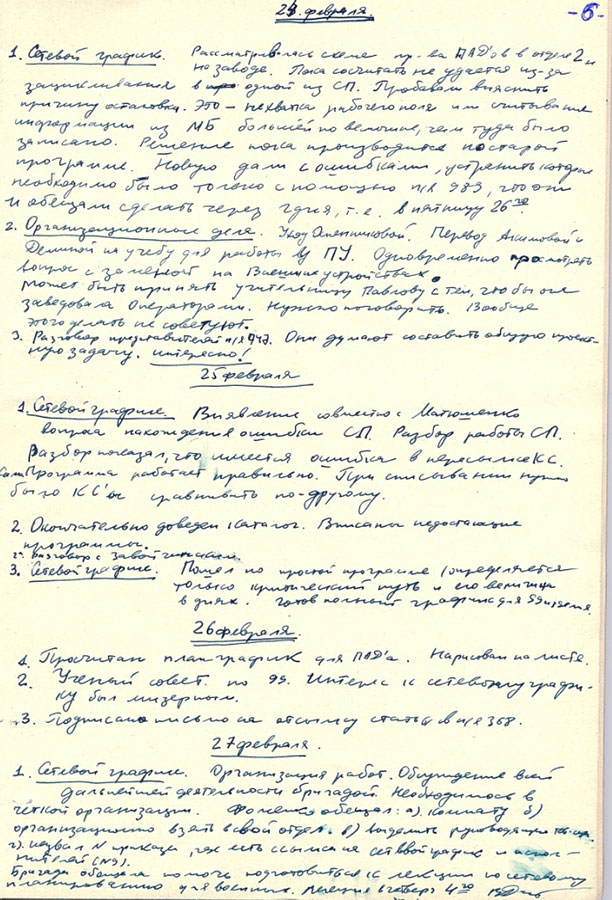 24. февраля.
- 6 -
1. Сетевой график. Рассматривалась схема пр-ва ПАД'ов в отделе 2 и
на заводе. Пока сосчитать не удается из-за
зацикливания в одной из СП. Пробовали выяснить
причину остановки. Это - нехватка рабочего поля или считывание
информации из МБ большей по величине, чем туда было
записано. Решение пока производится по старой
программе. Новую дали с ошибками, устранить которые
необходимо было только с помощью п/я 989, что они
и обещали сделать через 2 дня, т.е. в пятницу 26го
2. Организационные дела. Уход Оленниковой. Перевод Акимовой и
Деминой на учебу для работы ЦПУ. Одновременно просмотреть
вопрос с заменой на Внешних устройствах.
Может быть принять учительницу Павлову с тем, чтобы она
заведовала операторами. Нужно поговорить. Вообще
этого делать не советуют.
3. Разговор представителей п/я Они думают составить общую проект-
ную задачу. Интересно!
25 февраля
1. Сетевой график. Выявление совместно с Матюшенко
вопроса нахождения ошибки СП. Разбор работы СП.
Разбор показал, что имеется ошибка в пересылке КС.
Сама Программа работает правильно. При списывании нужно
было КС'ы сравнивать по-другому.
2. Окончательно доведен каталог. Вписаны недостающие
программы.
2а. Разговор с
3. Сетевой график. Пошел по простой программе (определяется
только критический путь и его величина
в днях. Готов полный график для 99 изделия.
26 февраля.
1. Просчитан план график для ПАД'а. Нарисован на листе.
2. Ученый совет по 99. Интерес к сетевому графи-
ку был мизерным.
3. Подписано письмо на отсылку статьи в п/я 368.
27 февраля.
1. Сетевой график. Организация работ. Обсуждение всей
дальнейшей деятельности бригадой. Необходимость в
четкой организации. Фоменко обещал: а) комнату б)
организационно взять в свой отдел. в) выделить руководящие
г). назвал N приказа, где есть ссылки на сетевой график и испол-
нителей (N9).
Бригада обещала помочь подготовиться к лекции по сетевому
планированию для военных. Лекция в четверг 4го